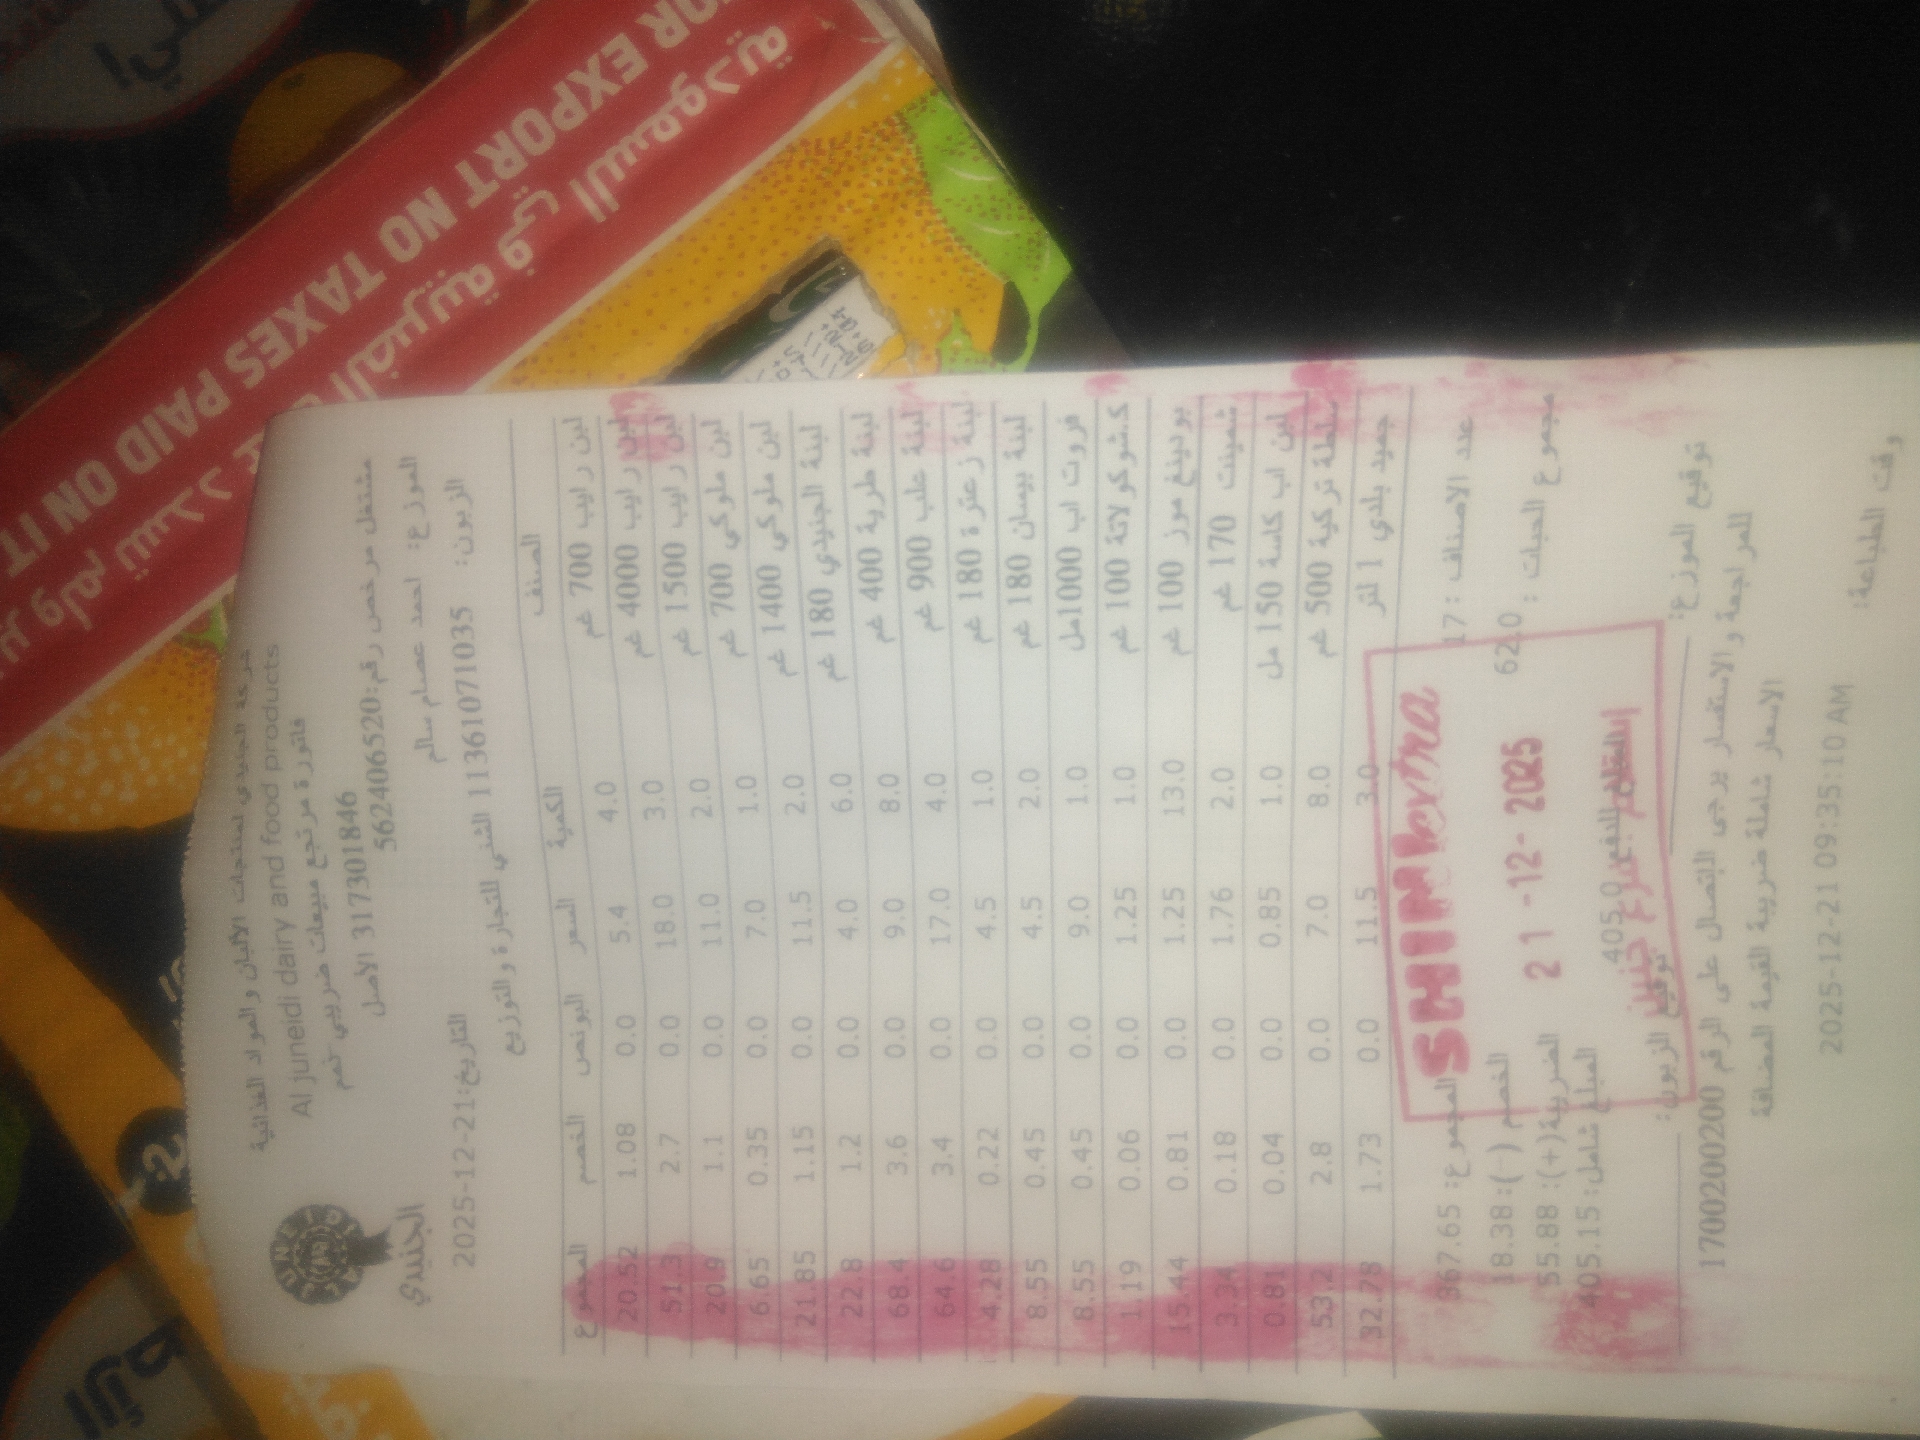 شركة الجنيدي لمنتجات الالبان و المواد الغذائية
Al juneidi dairy and food products
فاتورة مرتجع مبيعات ضريبي نعم
3173018446 الاصل
مشتغل مرخص رقم:562406520
الجنيدي
الموزع: احمد عصام سالم
التاريخ:21-12-2025
الزبون: 11361071035 الشني للتجارة والتوزيع
الصنف الكمية السعر البونص الخصم المجموع
لبن رايب 700 غم 4.0 5.4 0.0 1.08 20.52
لبن رايب 4000 غم 3.0 18.0 0.0 2.7 51.3
لبن رايب 1500 غم 2.0 11.0 0.0 1.1 20.9
لبن ملوكي 700 غم 1.0 7.0 0.0 0.35 6.65
لبن ملوكي 1400 غم 2.0 11.5 0.0 1.15 21.85
لبنة الجنيدي 180 غم 6.0 4.0 0.0 1.2 22.8
لبنة طرية 400 غم 8.0 9.0 0.0 3.6 68.4
لبنة علب 900 غم 4.0 17.0 0.0 3.4 64.6
لبنة زعترة 180 غم 1.0 4.5 0.0 0.22 4.28
لبنة بيسان 180 غم 2.0 4.5 0.0 0.45 8.55
فروت اب 1000مل 1.0 9.0 0.0 0.45 8.55
ك.شوكولاتة 100 غم 1.0 1.25 0.0 0.06 1.19
بودينغ موز 100 غم 13.0 1.25 0.0 0.81 15.44
شمينت 170 غم 2.0 1.76 0.0 0.18 3.34
لبن اب كاسة 150 مل 1.0 0.85 0.0 0.04 0.81
سلطة تركية 500 غم 8.0 7.0 0.0 2.8 53.2
جميد بلدي 1 لتر 3.0 11.5 0.0 1.73 32.78
عدد الاصناف : 17
المجموع: 367.65
مجموع الحبات : 62.0
الخصم (-): 18.38
الضريبة(+): 55.88
405.0
المبلغ شامل: 405.15
SHINI extra
21 -12- 2025
توقيع الموزع:
توقيع الزبون:
للمراجعة والاستفسار يرجى الاتصال على الرقم 1700200200
الاسعار شاملة ضريبة القيمة المضافة
وقت الطباعة:
2025-12-21 09:35:10 AM
FOR EXPORT NO TAXES PAID ON IT
ولم تسدد عنه الضريبة في السعودية